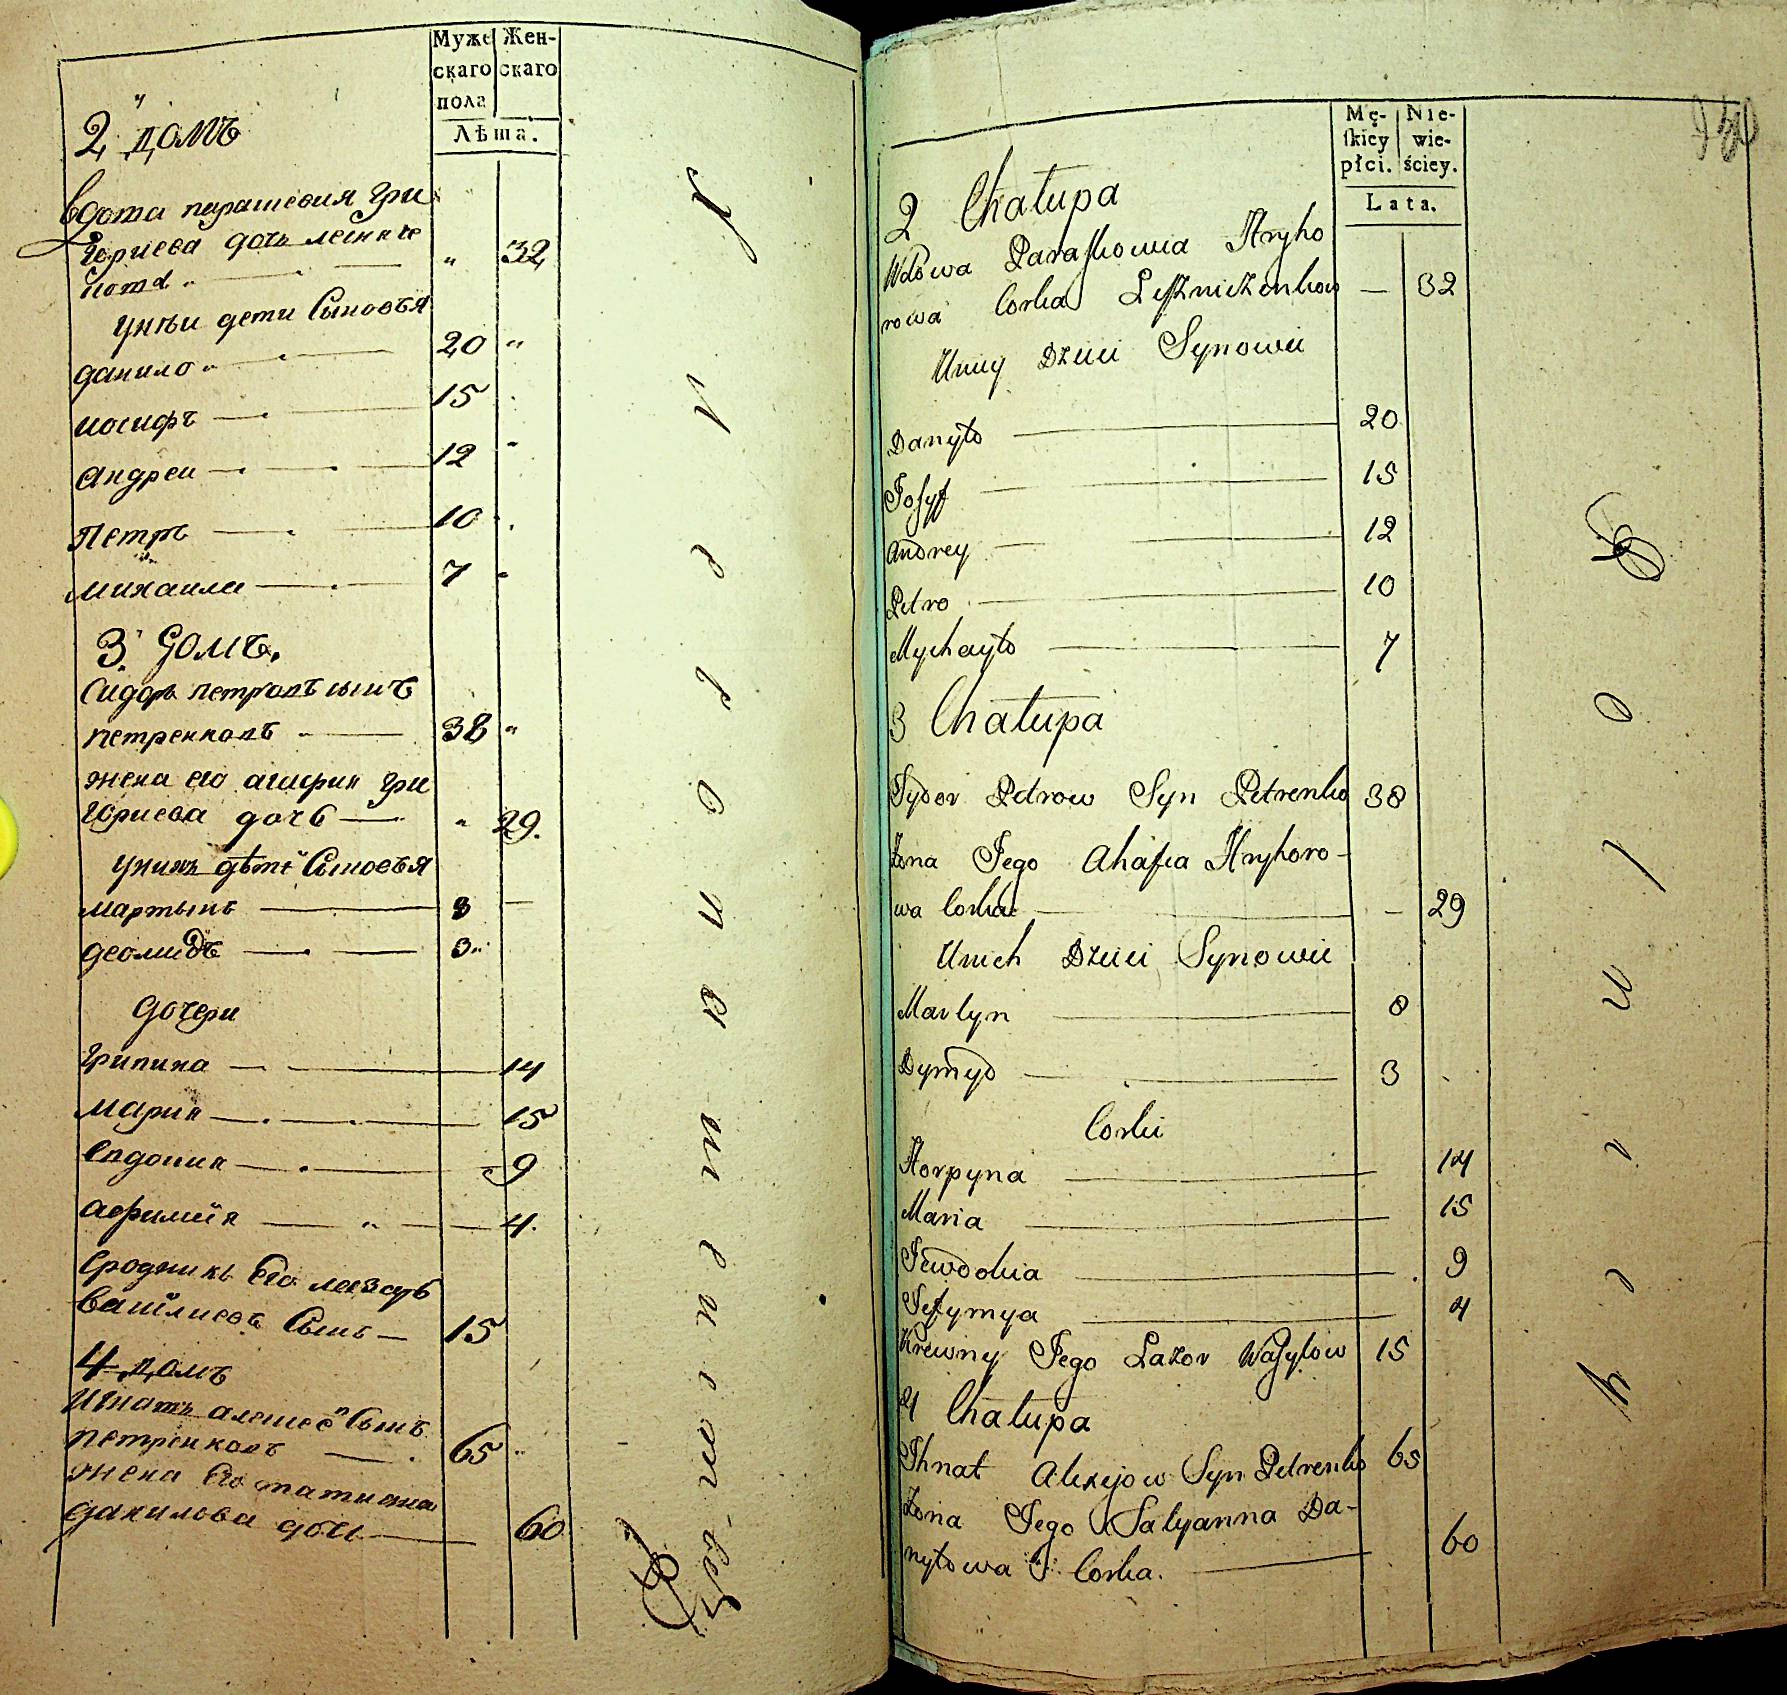 Муже
скаго
пола
Жен-
скаго
Лѣта.
2 домъ
вдова парасковия гри
гориева дочь
32
унѣи дети сыновья
данило 20
иосифъ 15
андреи 12
Петръ 10
михаила 7
3. домъ.
Сидоръ петровъ сынъ
петренковъ 38
жена его агафия гри
гориева дочь 29.
унихъ дѣти сыновья
мартынъ 8
деомидъ 3
дочери
Грипина 14
мария 15
евдокия 9
аефимия 4.
Сродникъ его лазарь
василиевъ сынъ 15
4 домъ
игнатъ алексеевъ сынъ
петренковъ 65
жена его татияна
данилова дочь 60
Mę-
skiey
płci.
Nie-
wie-
ściey.
Lata.
2 Chałupa
Wdowa Paraskowia Hryho
rowa Corka 32
Uniey Dzieci Synowie
Danyło 20
Josyf 15
Andrey 12
Petro 10
Mychayło 7
3 Chałupa
Sydor Petrow Syn Petrenko 38
Żona Jego Ahafia Hryhoro-
wa Corka 29
Unich Dzieci Synowie
Martyn 8
Dymyd 3
Corki
Horpyna 14
Maria 15
Jewdokia 9
Jefymya 4
Krewny Jego Łazor Wasylow 15
4 Chałupa
Ihnat Alexejow Syn Petrenko 65
Żona Jego Tatyanna Da-
nyłowa Corka. 60